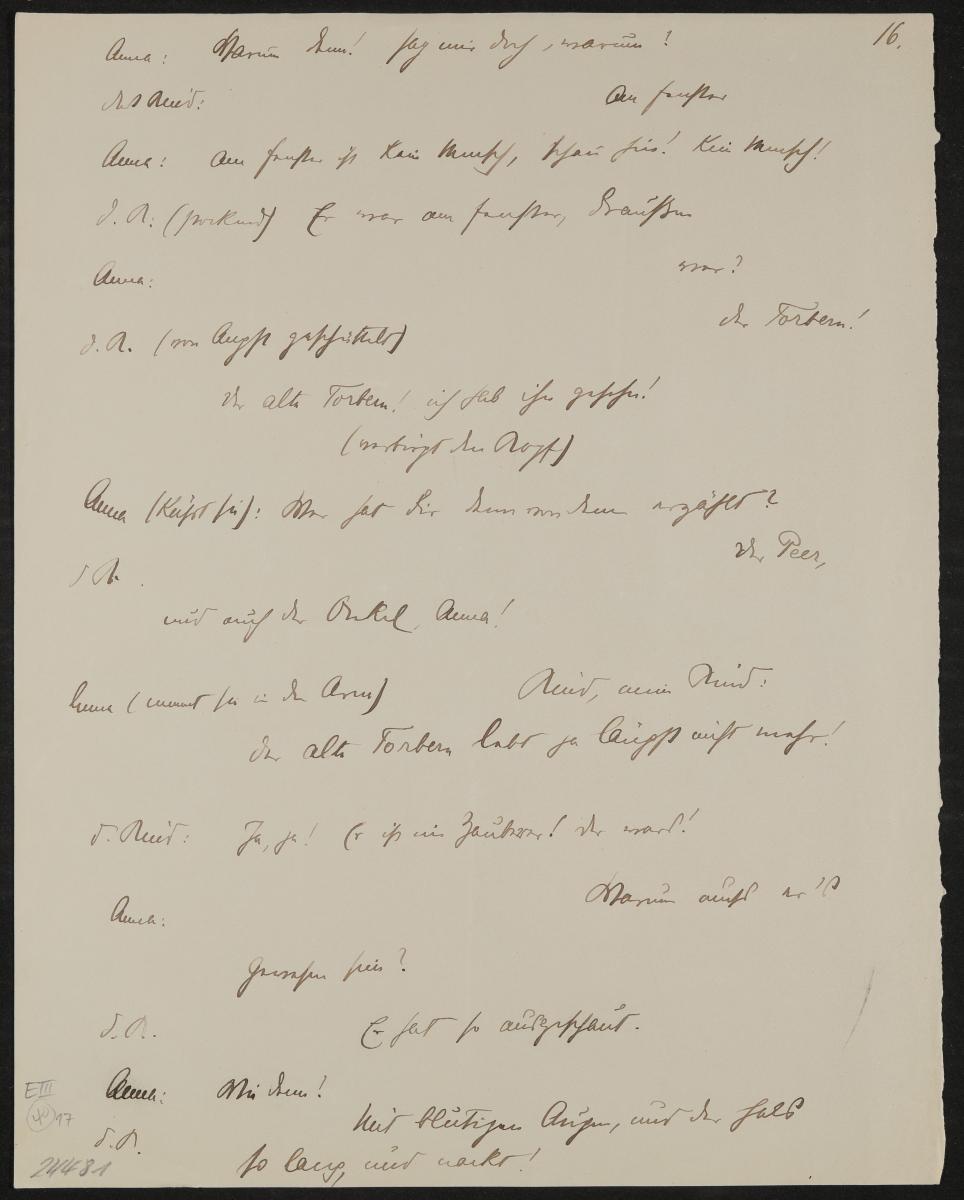 16.
Anna: Warum denn! sag mir doch, warum?
das Kind: Am Fenster
Anna: Am Fenster ist kein Mensch, schau hin! Kein Mensch!
d. K: (stockend) Er war am Fenster, draußen
Anna: wer?
der Torbern!
d. K. (von Angst geschüttelt)
der alte Torbern! ich hab ihn gesehn!
(verbirgt den Kopf)
Anna (küßt sie): Wer hat dir denn von dem erzählt?
der Peer,
d K.
und auch der Onkel, Anna!
Anna (nimmt sie in den Arm) Kind, mein Kind:
der alte Torbern lebt ja längst nicht mehr!
d. Kind: Ja, ja! Er ist ein Zauberer! der ward!
Warum muß er's
Anna:
gewesen sein?
d. K. Er hat so ausgeschaut.
Anna: Wie denn!
Mit blutigen Augen, und der Hals
d. K.
so lang, und nackt!
E III
17
24481